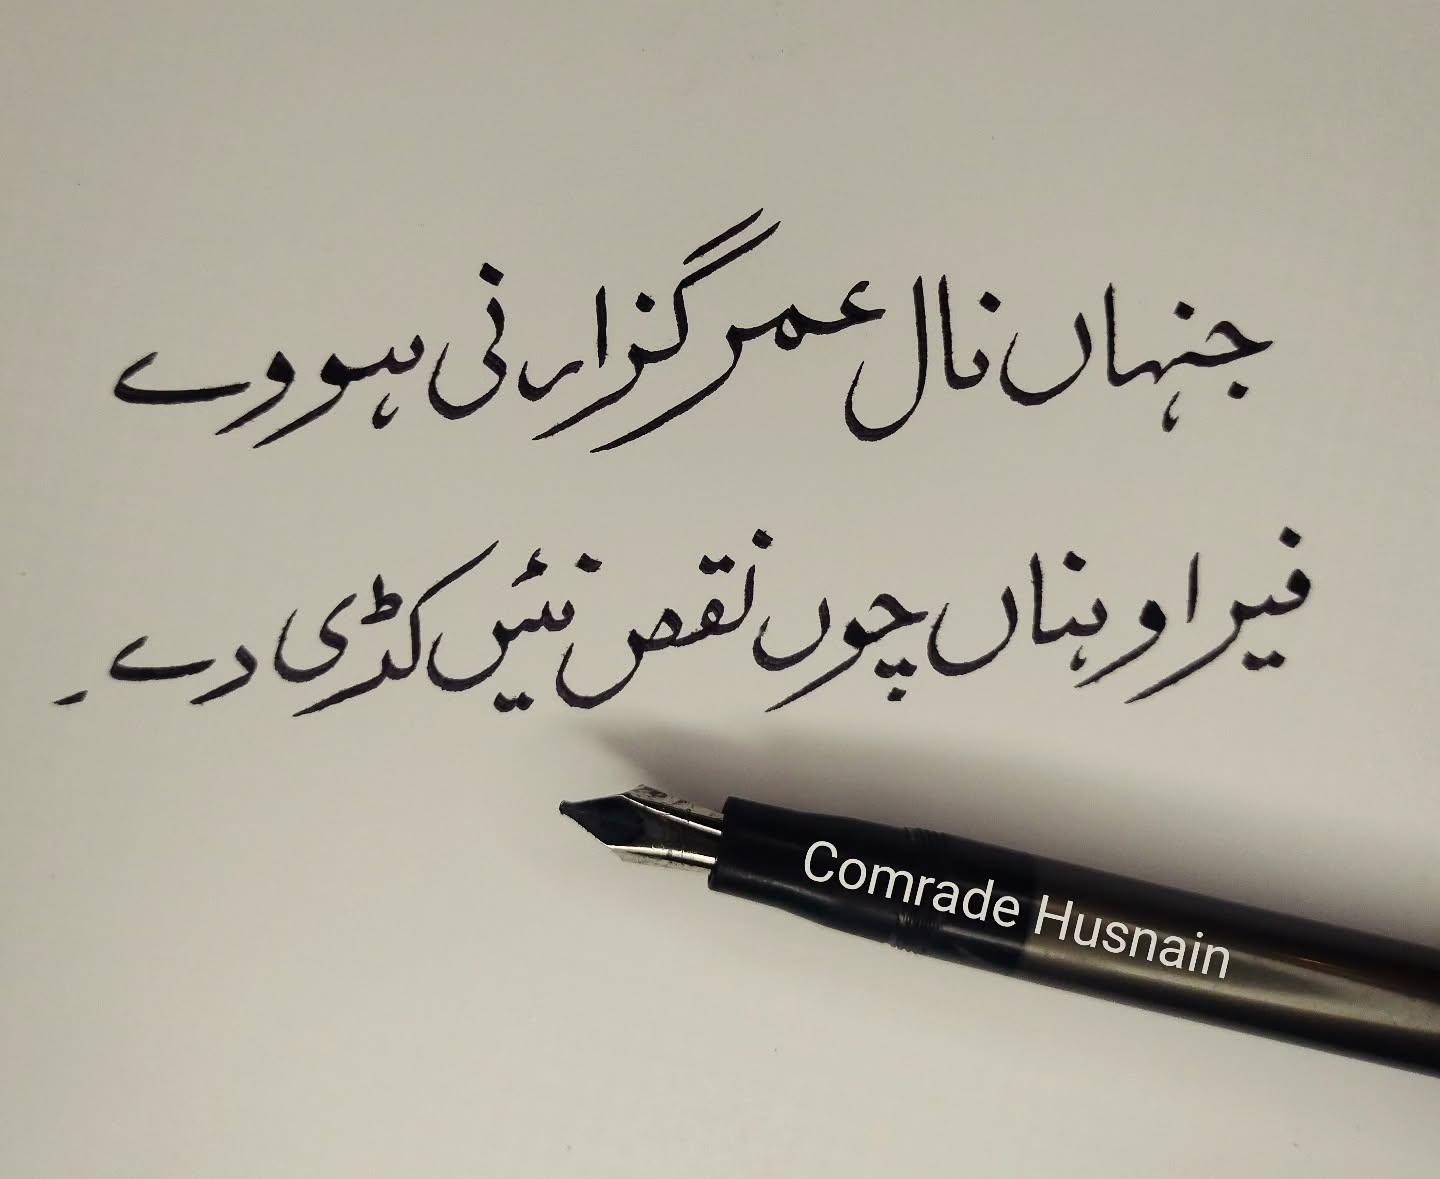 جنہاں نال عمر گزارنی ہووے
فیر اوہناں چوں نقص نئیں کڈی دے۔
Comrade Husnain